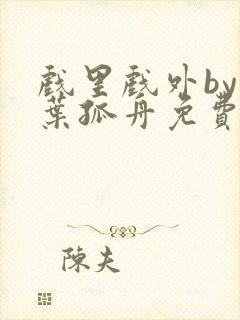 戲里戲外by
葉孤舟免費
陳夫